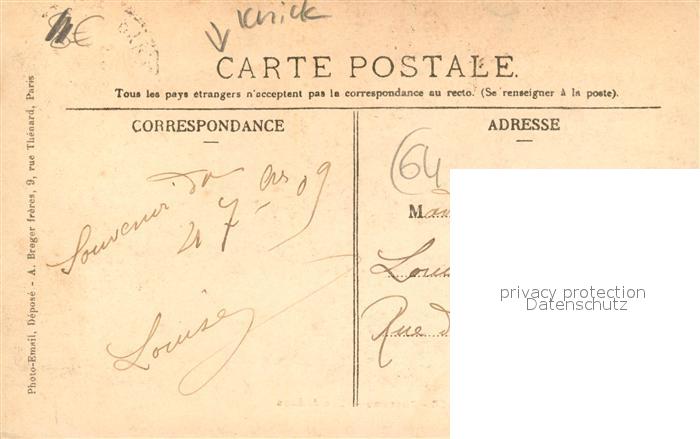 Knick
€
CARTE POSTALE.
Tous les pays étrangers n'acceptent pas la correspondance au recto. (Se renseigner à la poste).
CORRESPONDANCE
ADRESSE
(64
Souvenir du
4 7 - 09
Louise
M
Rue
privacy protection
Datenschutz
Photo-Email, Déposé - A. Breger frères, 9, rue Thénard, Paris